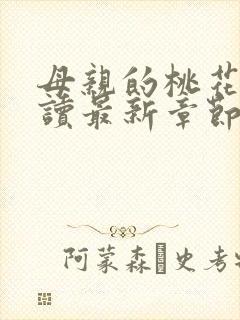 母親的桃花
讀最新章節
阿蒙森 史考特